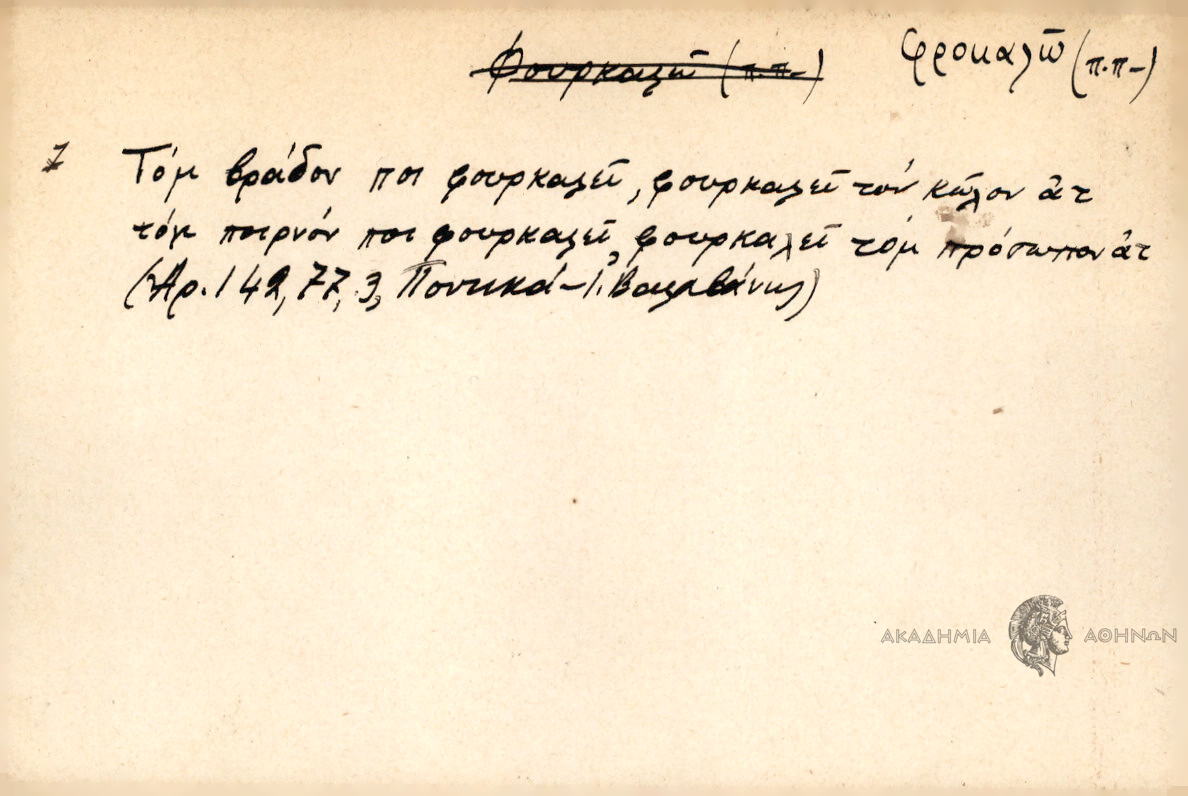 φουρκαλῶ (π.π-) φροκαλῶ (π.π-)
1 Τόμ βράδον ποι φουρκαλεῖ, φουρκαλεῖ τόν κῶλον ἀτ
τόμ ποιρνόν ποι φουρκαλεῖ, φουρκαλεῖ τόμ πρόσωπον ἀτ
(Ἀρ. 149, 77, 3, Ποντικά - Ἰ. Βαλαβάνης)
ΑΚΑΔΗΜΙΑ ΑΘΗΝΩΝ